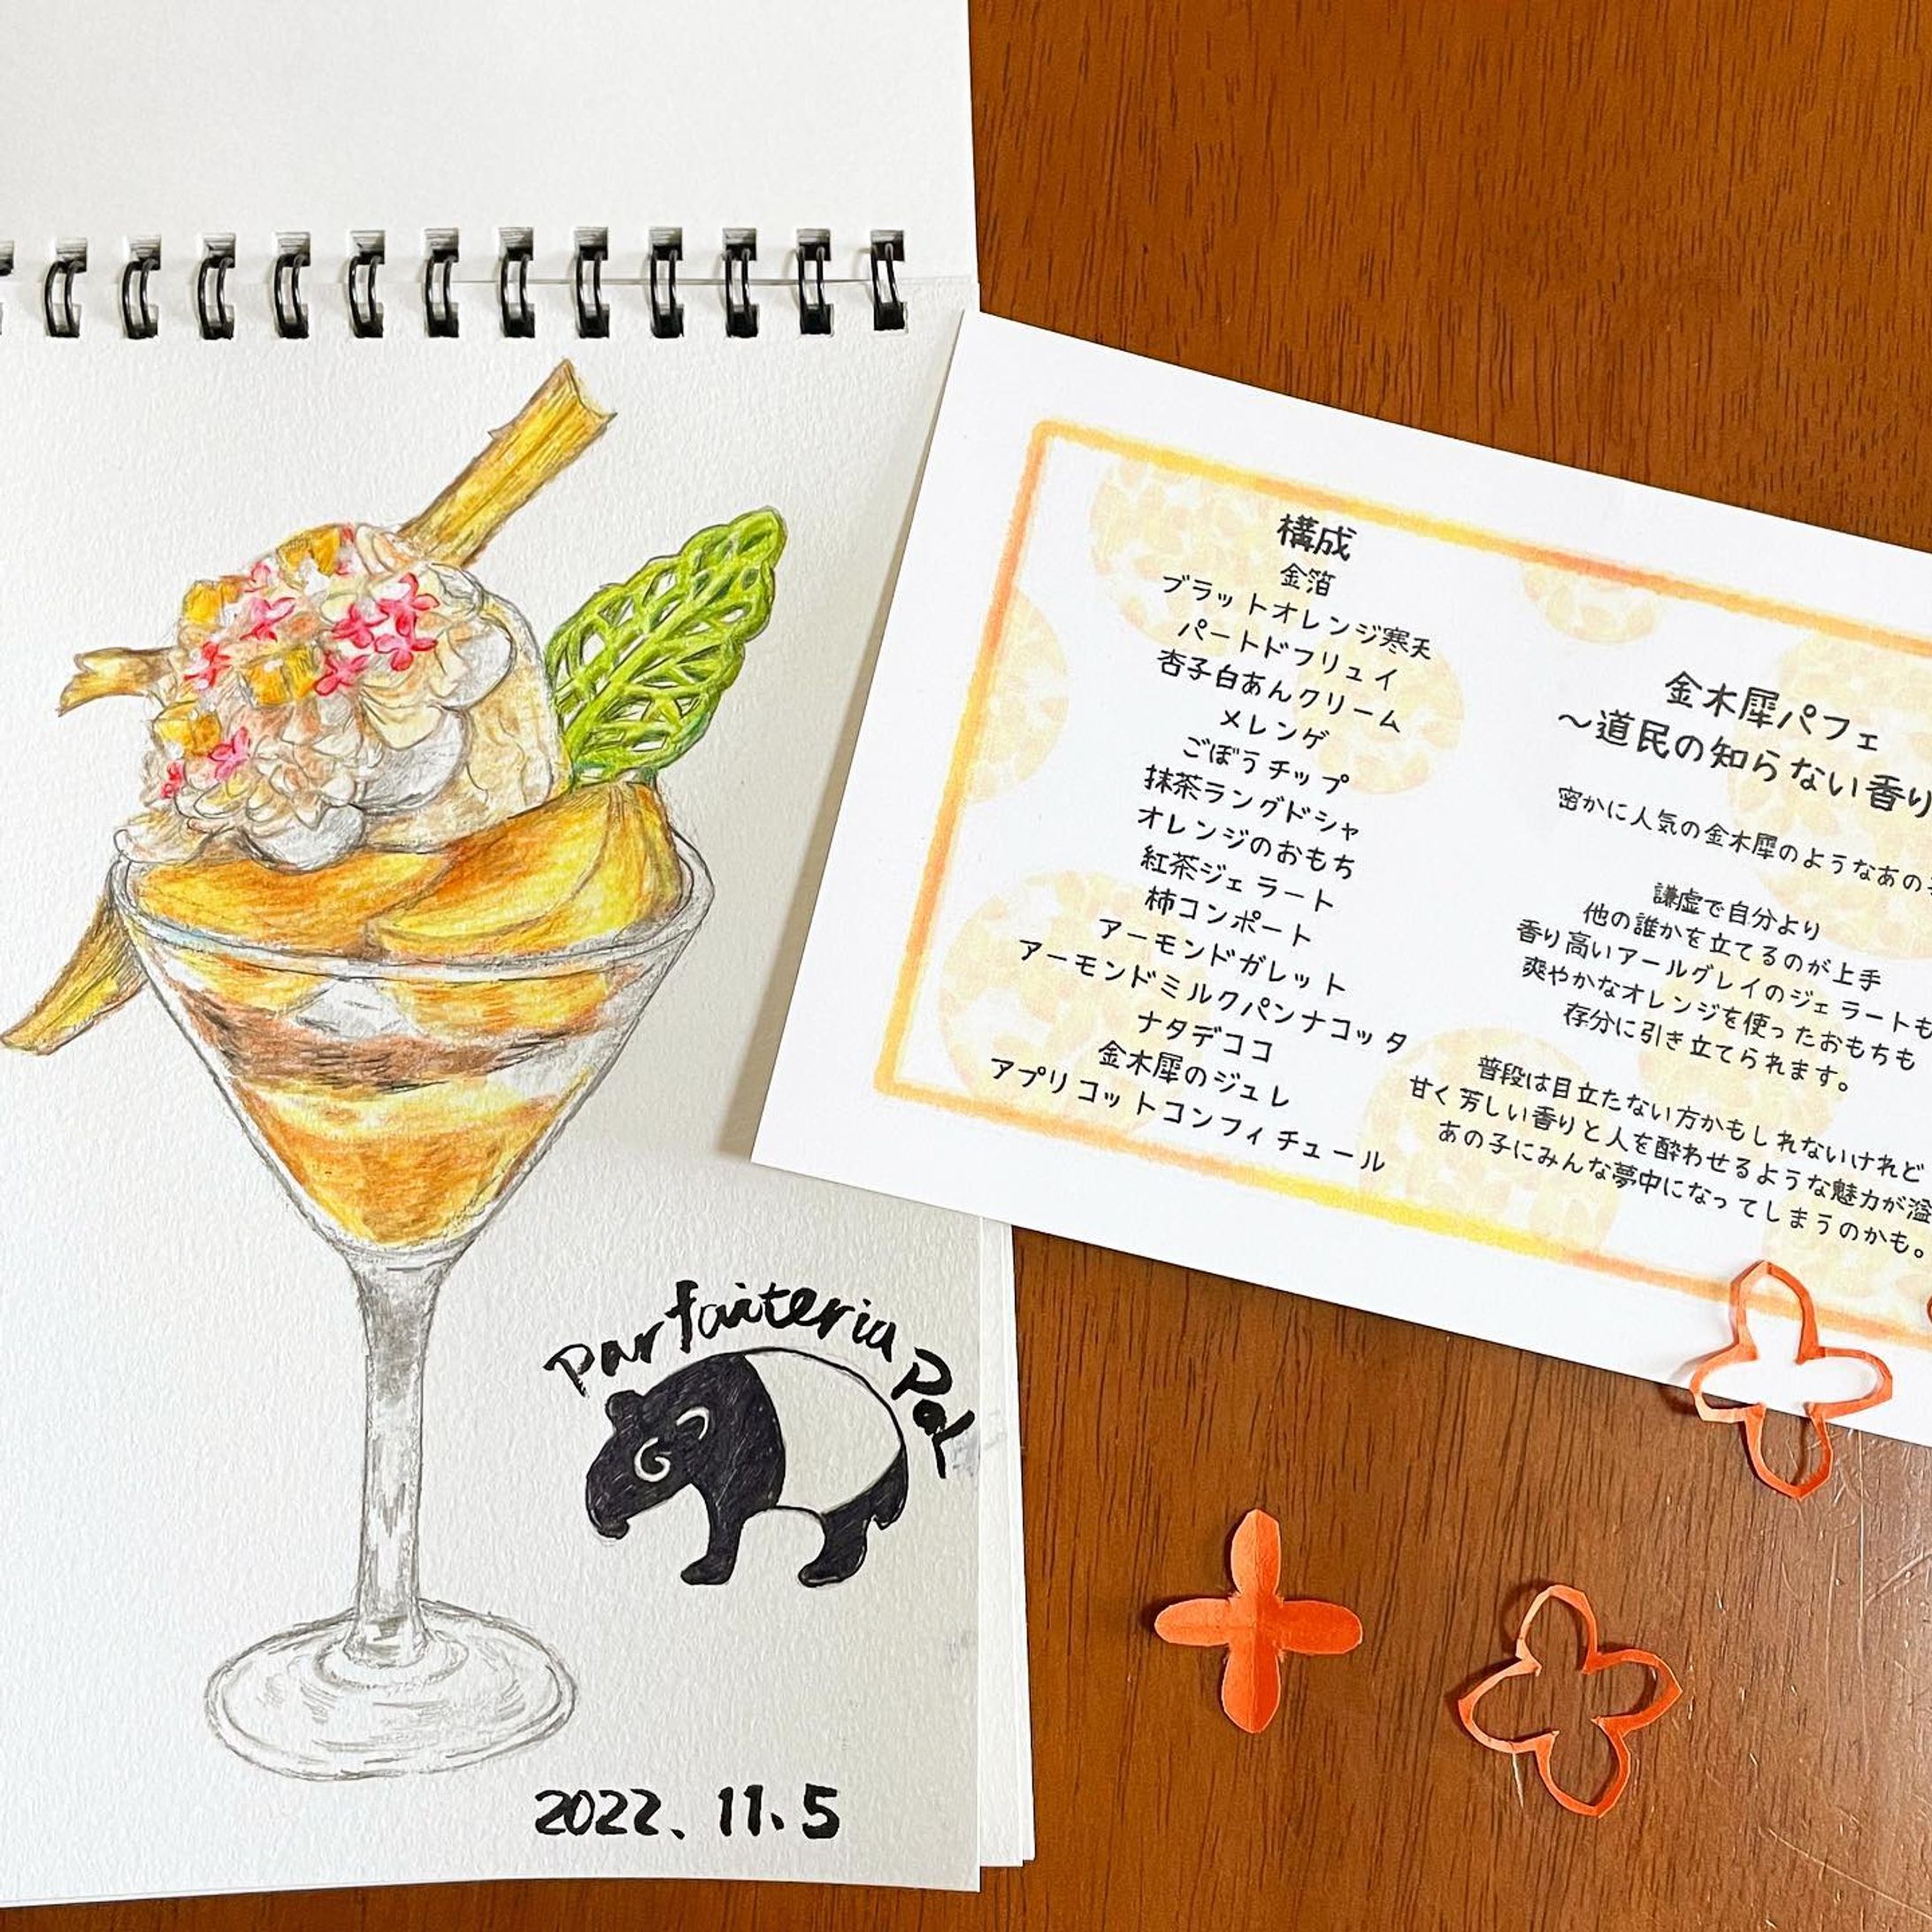 Parfaiteria PaL
2022.11.5
構成
金箔
ブラットオレンジ寒天
パートドフリュイ
杏子白あんクリーム
メレンゲ
ごぼうチップ
抹茶ラングドシャ
オレンジのおもち
紅茶ジェラート
柿コンポート
アーモンドガレット
アーモンドミルクパンナコッタ
ナタデココ
金木犀のジュレ
アプリコットコンフィチュール
金木犀パフェ
～道民の知らない香り
密かに人気の金木犀のようなあの
謙虚で自分より
他の誰かを立てるのが上手
香り高いアールグレイのジェラートも
爽やかなオレンジを使ったおもちも
存分に引き立てられます。
普段は目立たない方かもしれないけれど
甘く芳しい香りと人を酔わせるような魅力が溢
あの子にみんな夢中になってしまうのかも。